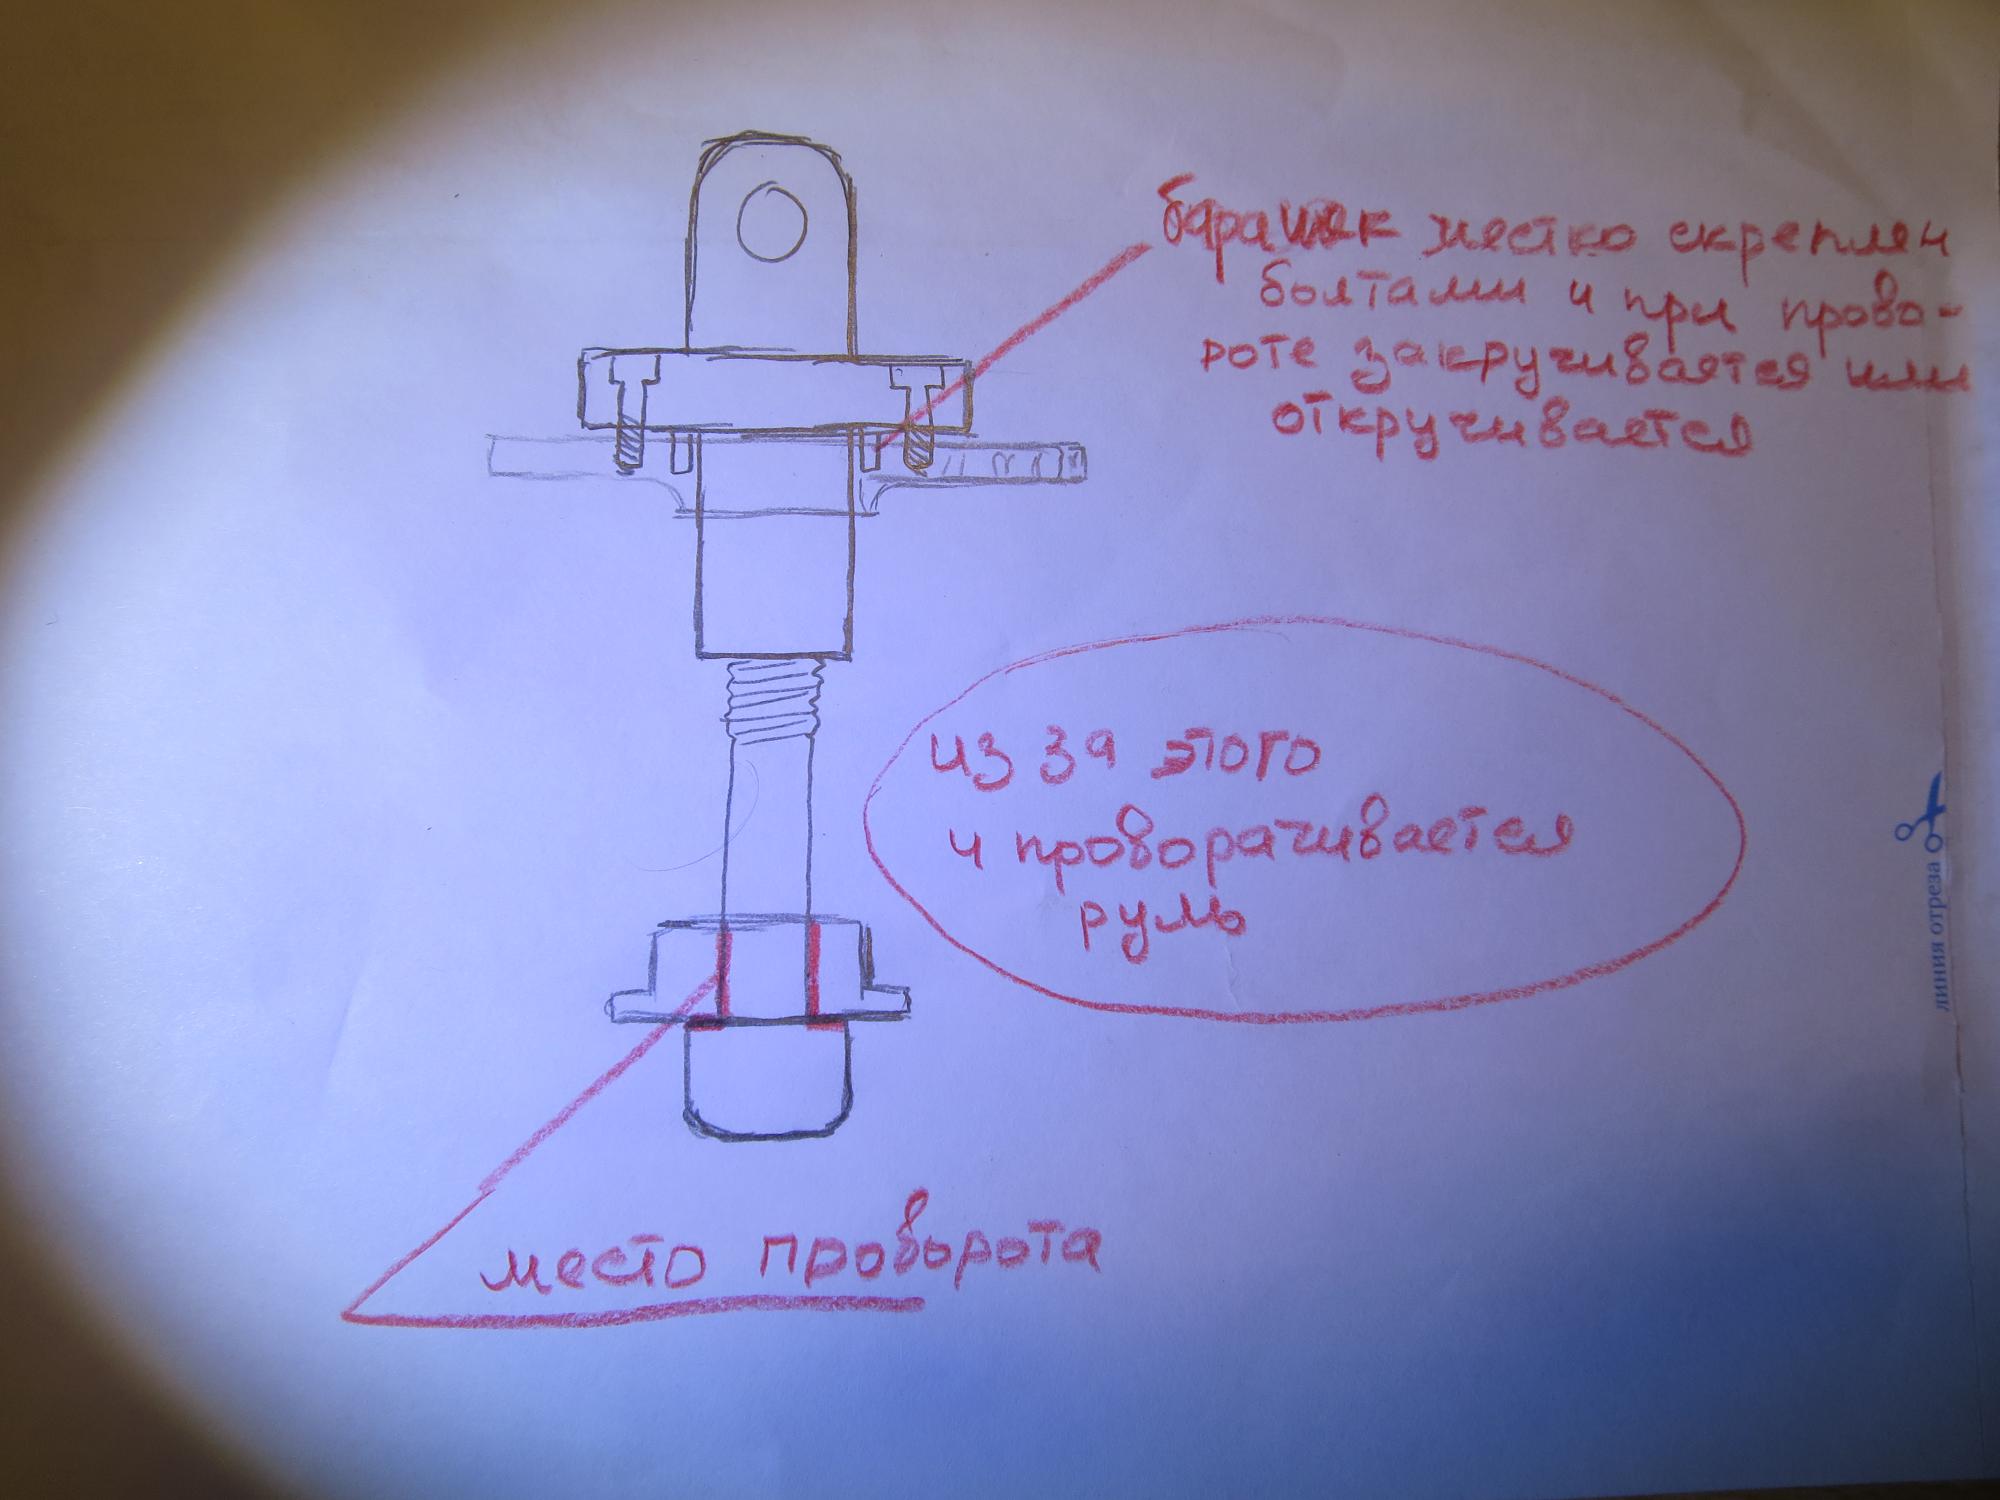 барашек жестко скреплен
болтами и при прово-
роте закручивается или
откручивается
из за этого
и проворачивается
руль
место проворота
линия отреза